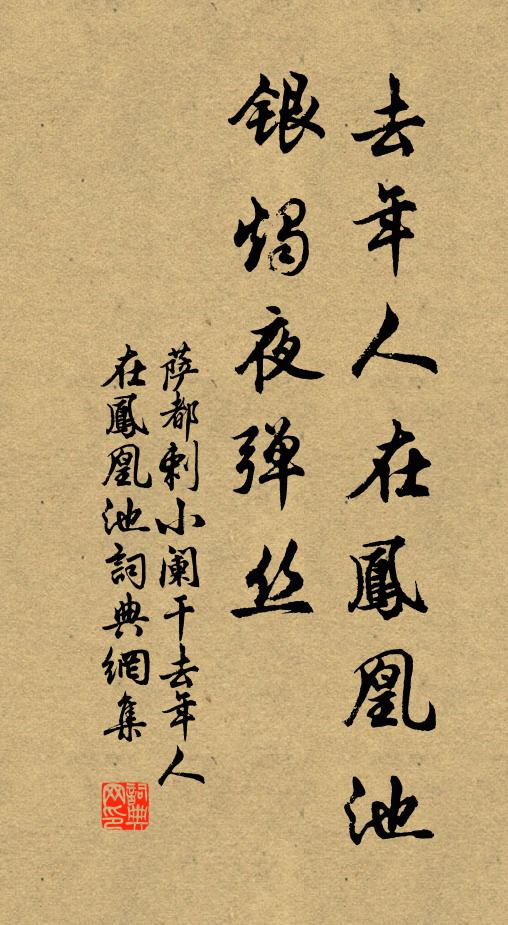 去年人在鳳凰池
銀燭夜弹丝
萨都剌小阑干去年人
在鳳凰池詞典網集
詞典网印